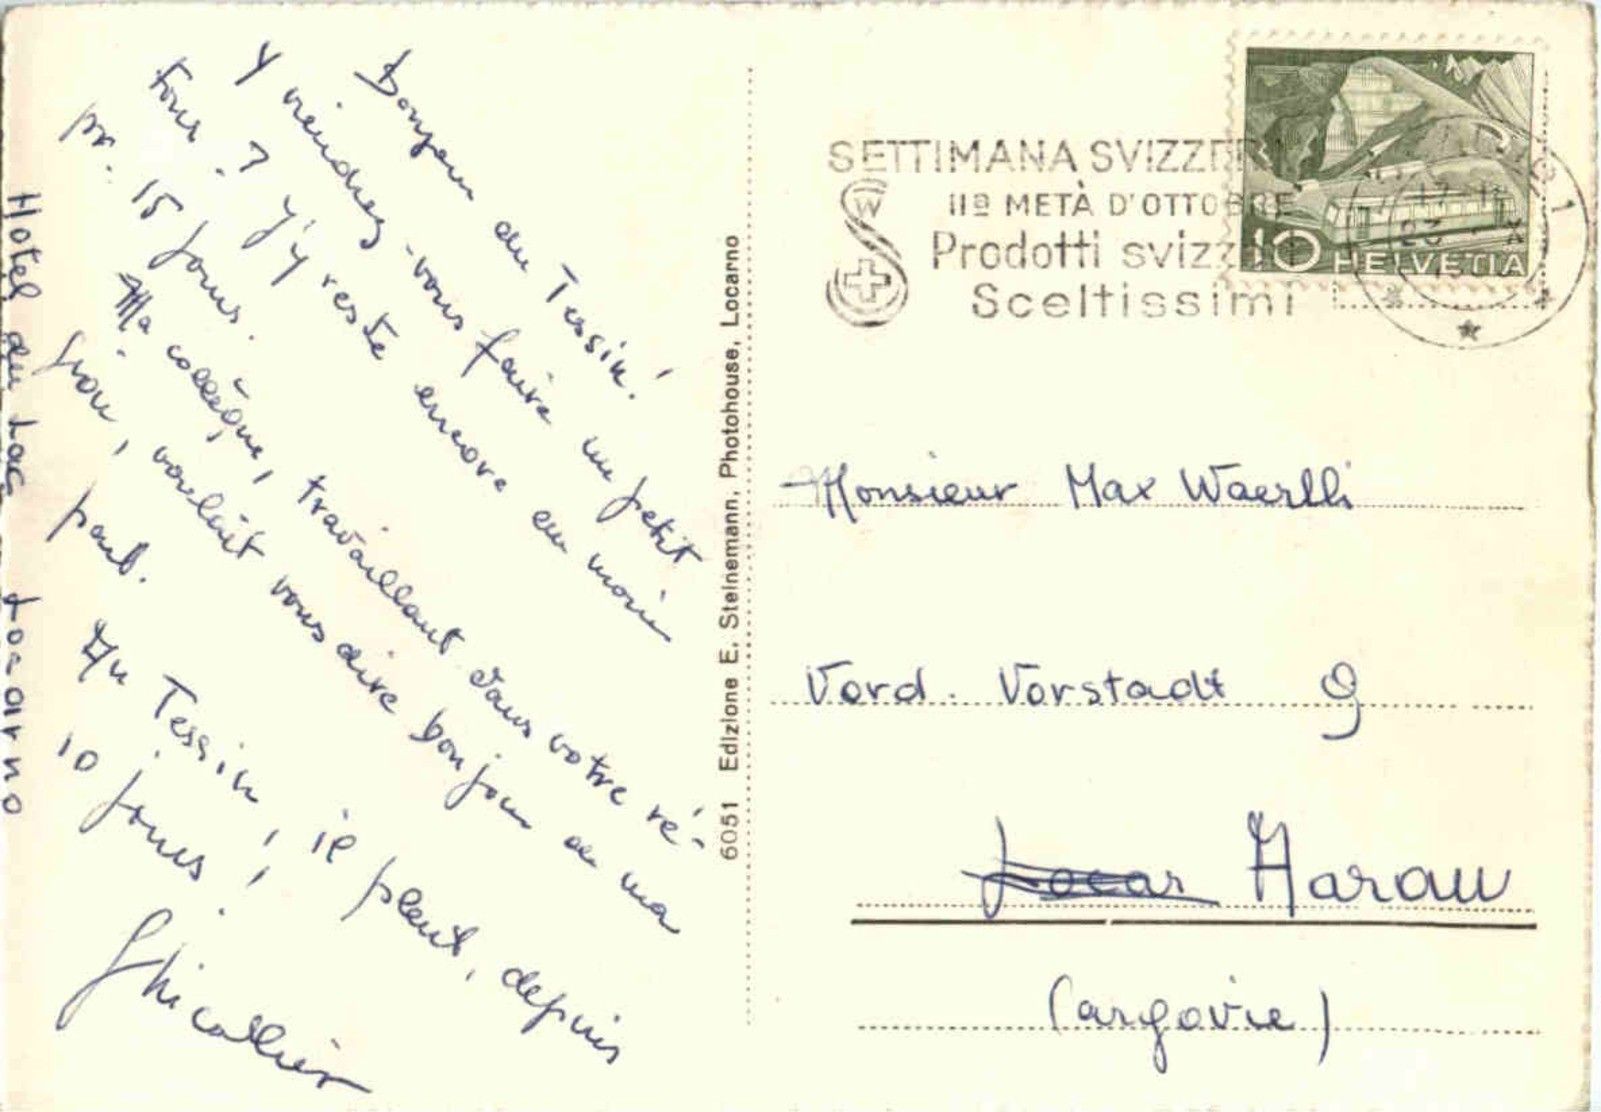 Bonjour du Tessin!
Y viendrez-vous faire un petit
tour? J'y reste encore au moin
pr. 15 jours.
Ma collègue, travaillant dans votre ré-
gion, voulait vous dire bonjour de ma
part.
Au Tessin, il pleut, depuis
10 jours!
Hotel du Lac Locarno
6051 Edizione E. Steinemann, Photohouse, Locarno
SETTIMANA SVIZZERA
IIª METÀ D'OTTOBRE
Prodotti svizzeri
Sceltissimi
W
10 HELVETIA
Monsieur Max Waerlli
Vord. Vorstadt 9
Locar Aarau
(argovie)